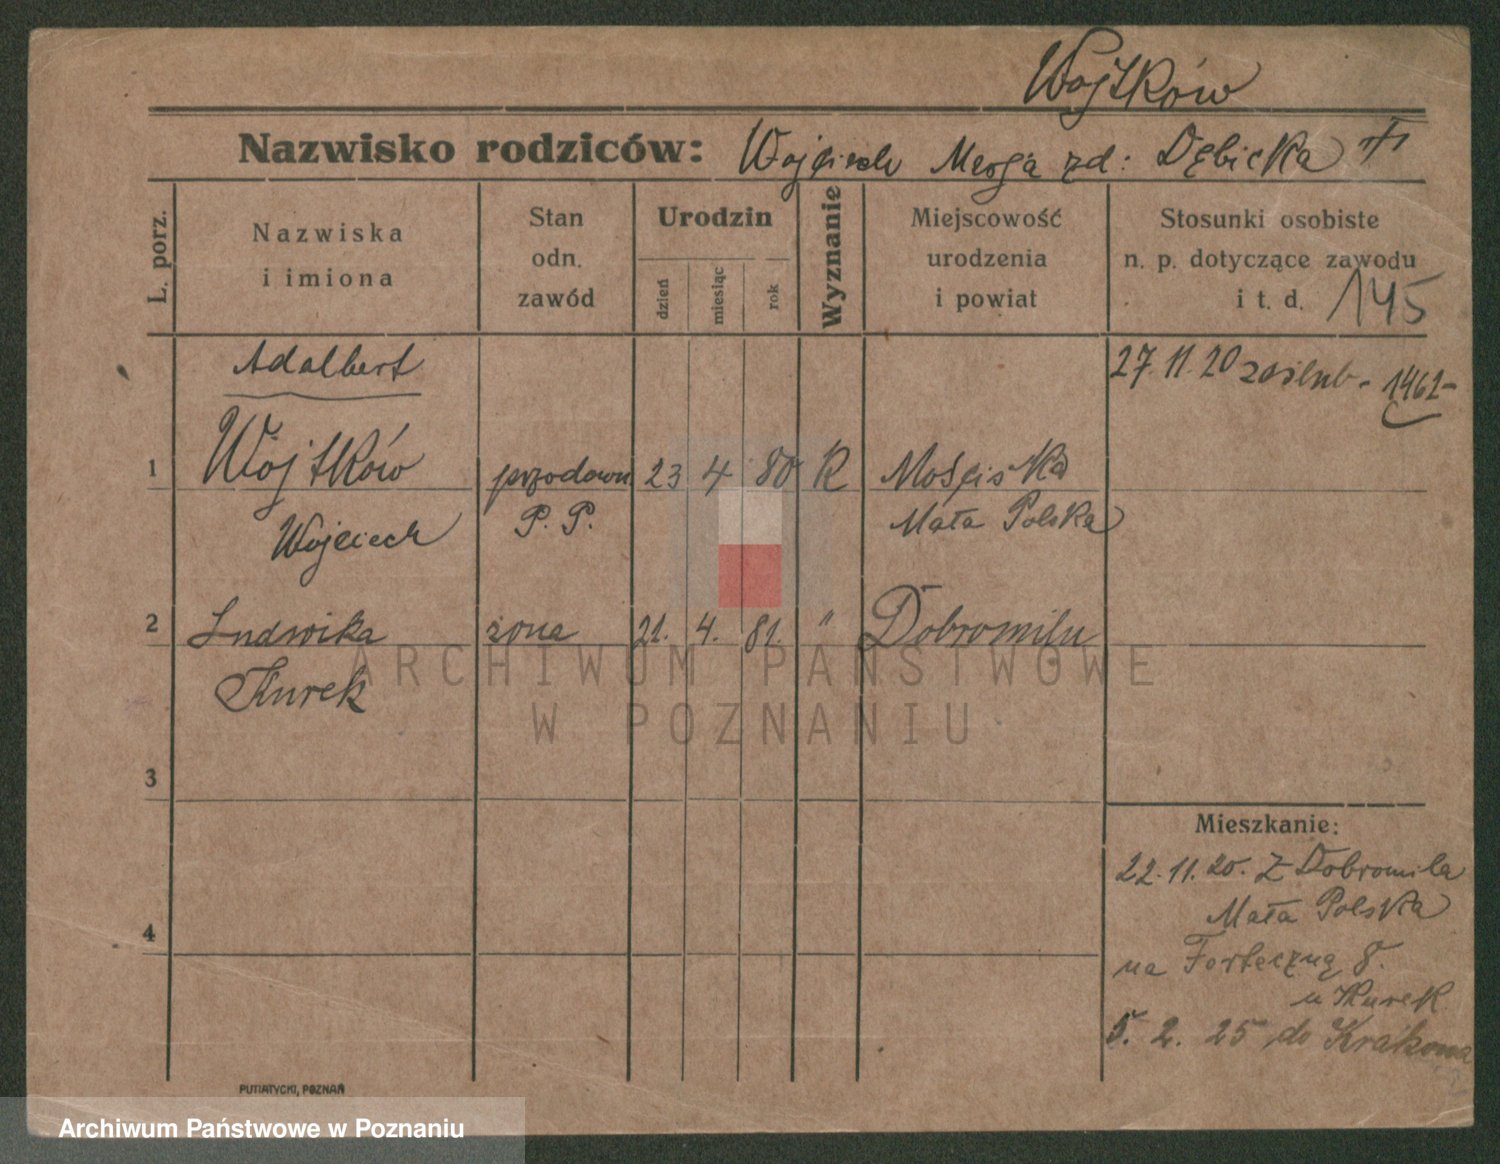 Wojtków
Nazwisko rodziców: Wojciech zd: Dębicka
L. porz.
Nazwiska
i imiona
Stan
odn.
zawód
Urodzin
dzień
miesiąc
rok
Wyznanie
Miejscowość
urodzenia
i powiat
Stosunki osobiste
n. p. dotyczące zawodu
i t. d. 145
Adalbert
27. 11. 20 zaślub - 1462-
1 Wojtków przodown 23 4 80 R Mościska
Wojciech P. P. Mała Polska
2 Ludwika żona 21. 4. 81. " Dobromilu
Kurek
3
4
Mieszkanie:
22. 11. 20. Z Dobromila
Mała Polska
na Forteczną 8.
u Kurek
5. 2. 25 do Krakowa
PUTIATYCKI, POZNAŃ
ARCHIWUM PAŃSTWOWE
W POZNANIU
Archiwum Państwowe w Poznaniu